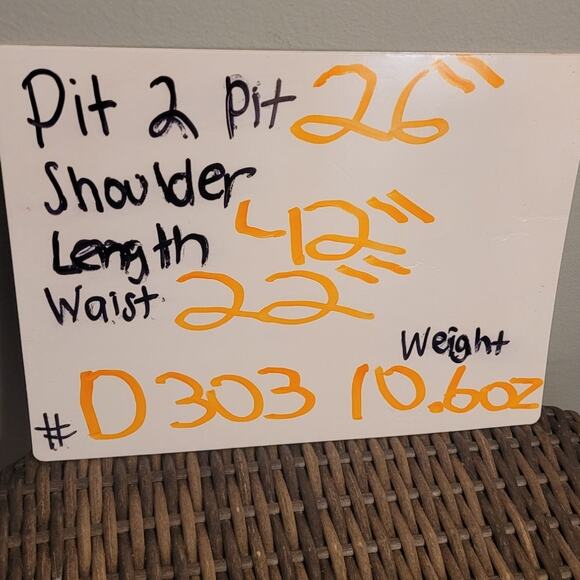 Pit 2 pit 26"
Shoulder
Length 42"
Waist 22"
Weight
# D303 10.6oz